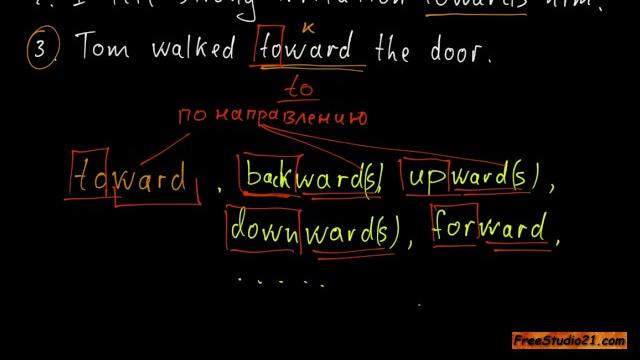 2. I felt strong irritation towards him.
к
3. Tom walked toward the door.
to
по направлению
toward, backward(s), upward(s),
downward(s), forward,
......
FreeStudio21.com